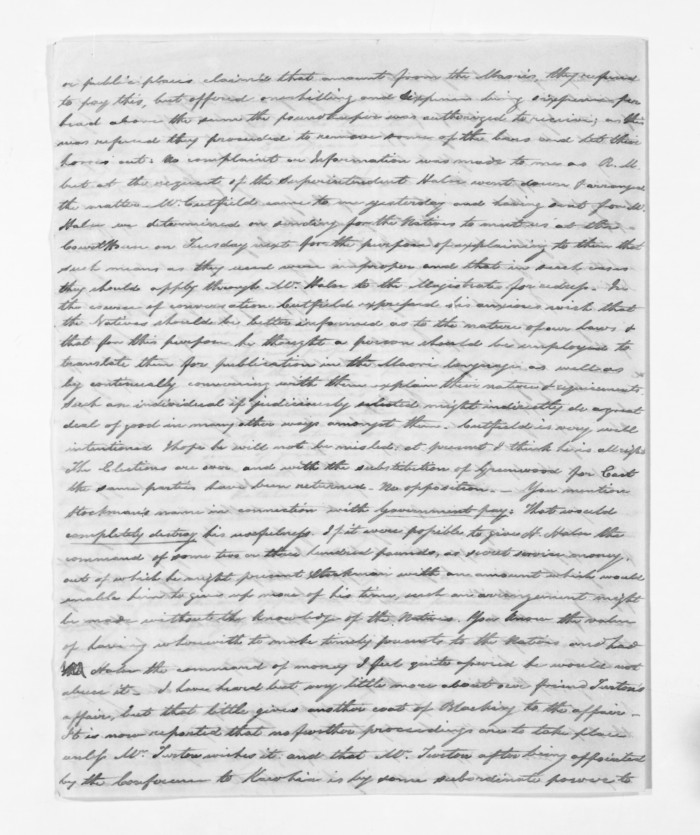 or public places claimed that amount from the Maories, they refused
to pay this, but offered one shilling and sixpence being sixpence per
head above the sum the poundkeeper was authorized to receive; as this
was refused they proceeded to remove some of the bars and let their
horses out. No complaint or Information was made to me as R.M.
but at the request of the Superintendent Halse went down & arranged
the matter. Mr. Cutfield came to me yesterday and having sent for Mr.
Halse we determined on sending for the Natives to meet us at the
Court House on Tuesday next for the purpose of explaining to them that
such means as they used were improper and that in such cases
they should apply through Mr. Halse to the Magistrate for redress. In
the course of conversation Cutfield expressed his anxious wish that
the Natives should be better informed as to the nature of our Laws &
that for this purpose he thought a person should be employed to
translate them for publication in the Maori language as well as
by continually conversing with them explain their nature & requirements.
Such an individual if judiciously selected might indirectly do a great
deal of good in many other ways amongst them. Cutfield is very well
intentioned I hope he will not be misled; at present I think he is all right
The Elections are over and with the substitution of Greenwood for East
the same parties have been returned. No opposition. — You mention
Stockman's name in connection with Government pay: That would
completely destroy his usefulness. If it were possible to give H. Halse the
command of some two or three hundred pounds, as secret service money,
out of which he might present Stockman with an amount which would
enable him to give up more of his time, such an arrangement might
be made without the knowledge of the Natives. You know the value
of having wherewith to make timely presents to the Natives, and had
Halse the command of money I feel quite assured he would not
abuse it. I have heard but very little more about our friend Turton's
affair, but that little gives another coat of Blacking to the affair —
It is now reported that no further proceedings are to take place
unless Mr. Turton wishes it and that Mr. Turton after being appointed
by the Conference to Kawhia is by some subordinate power to